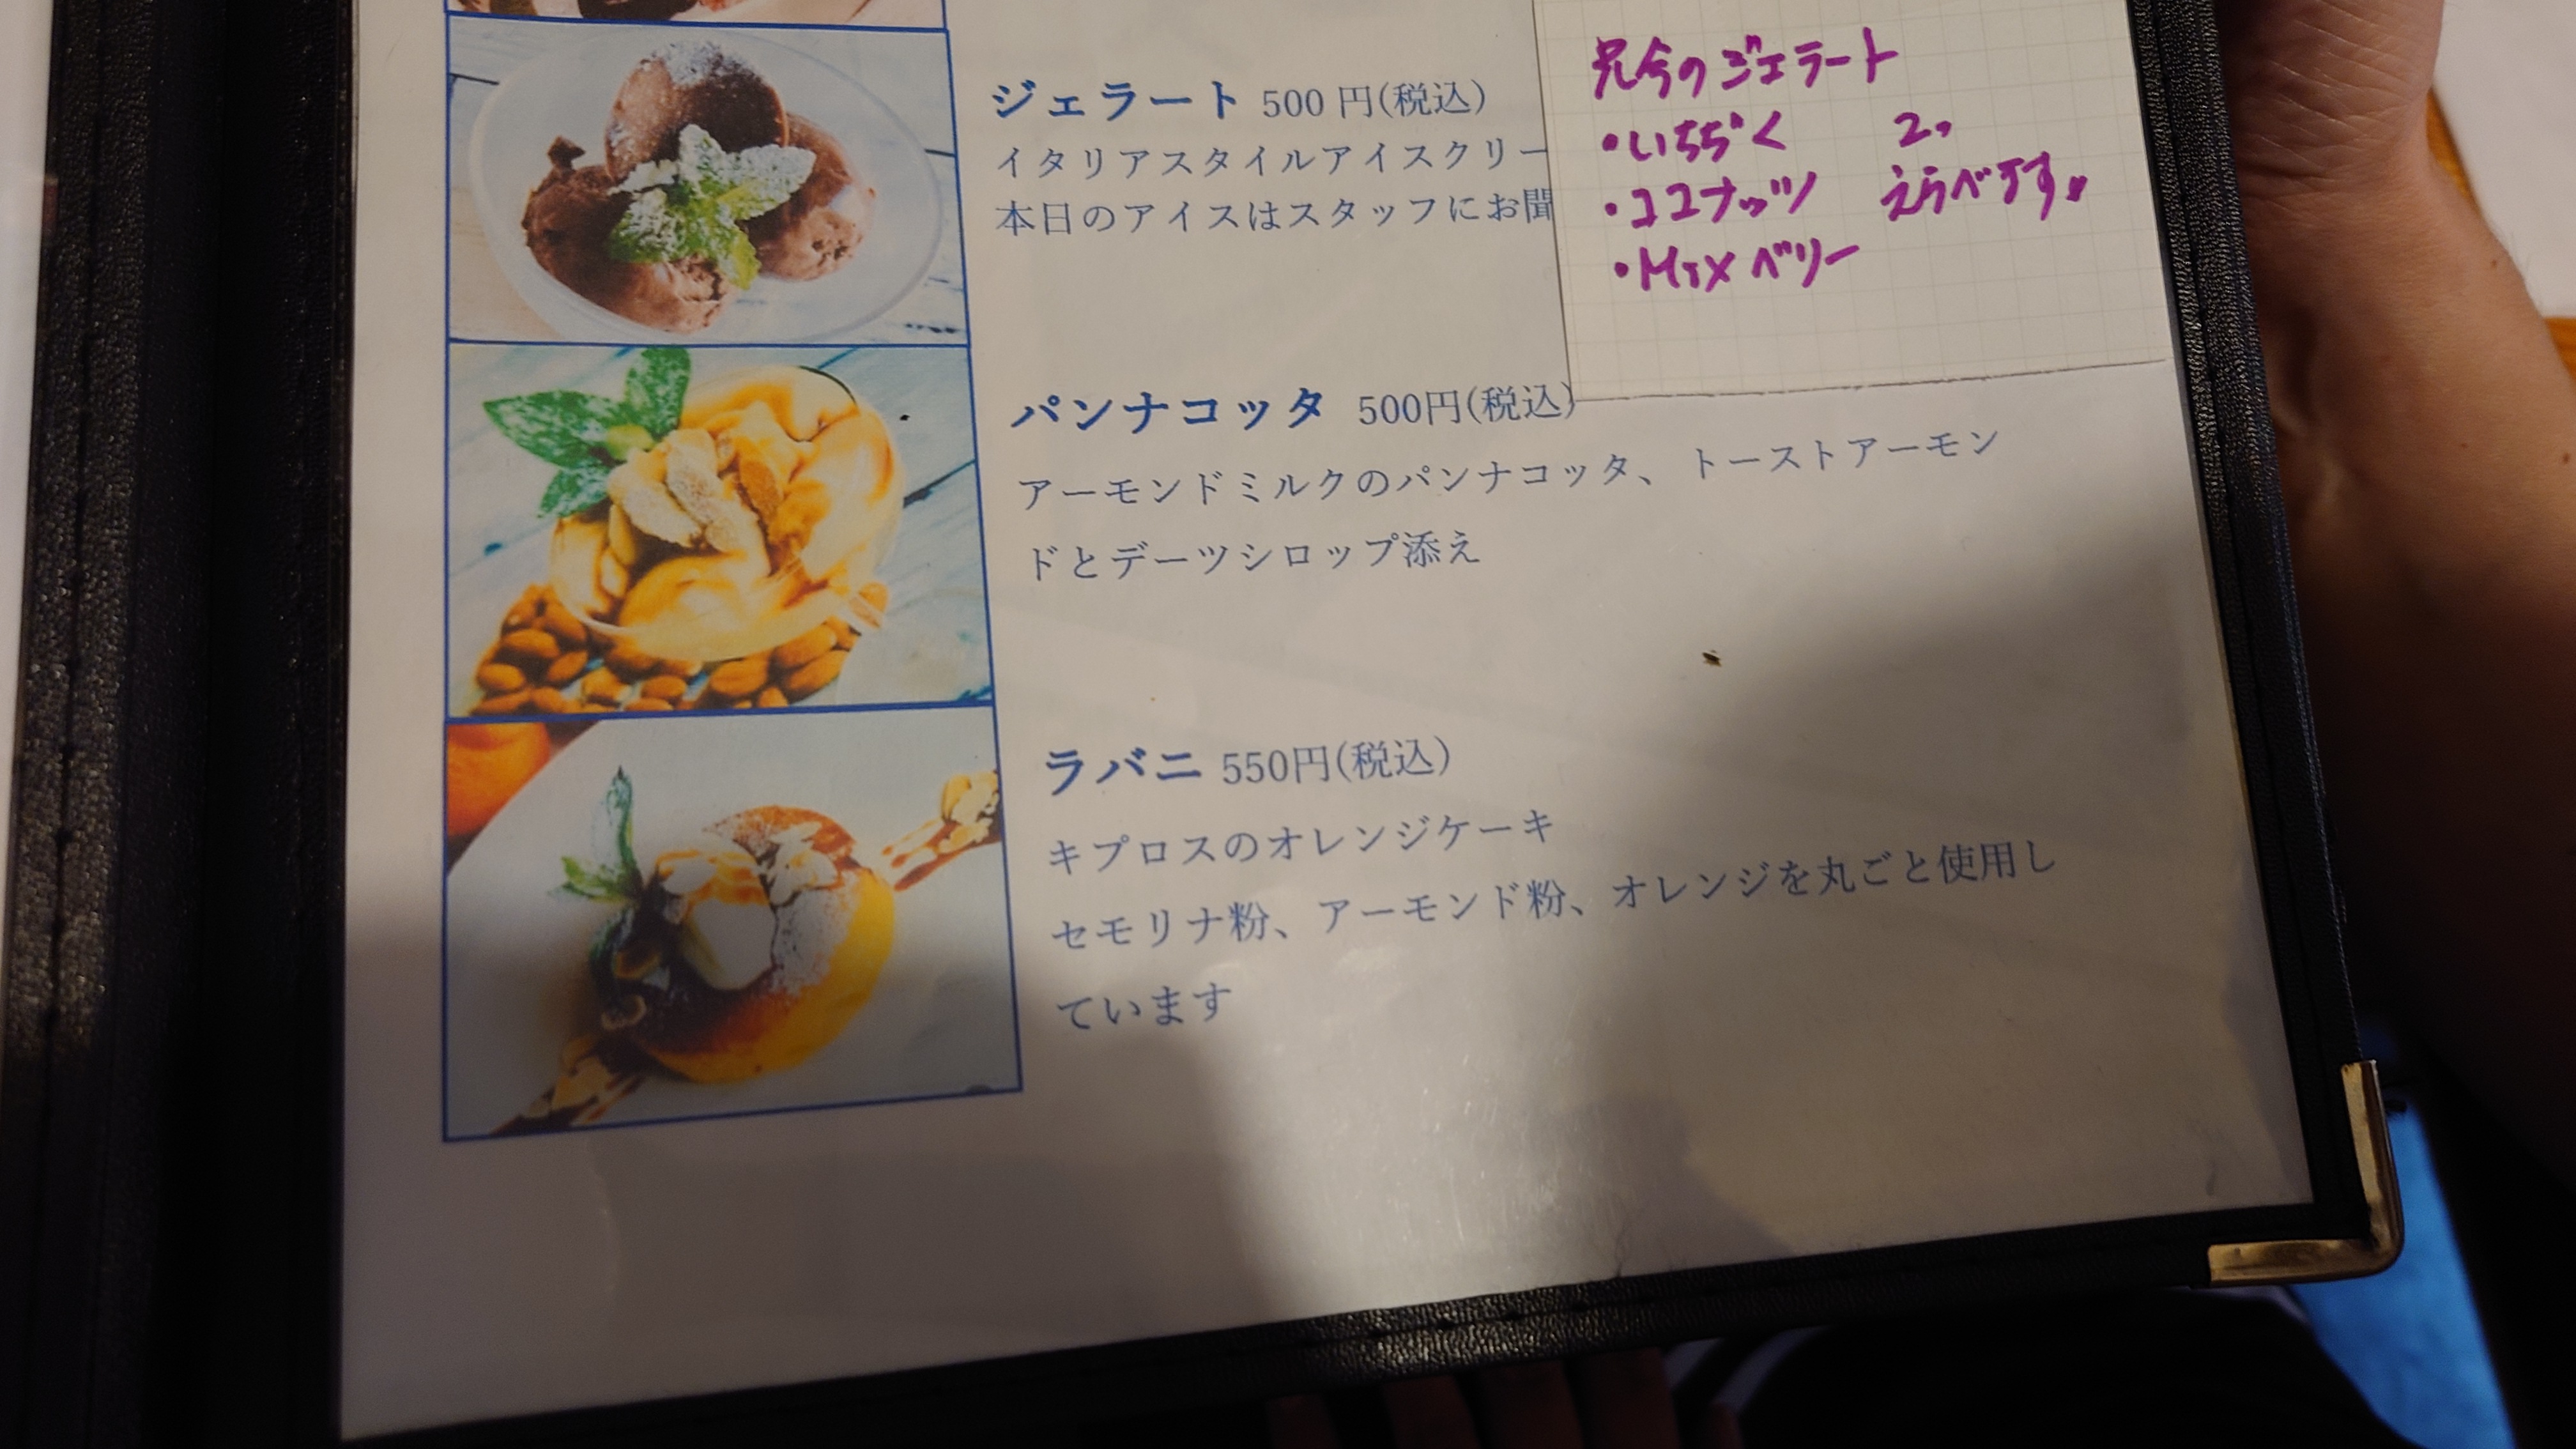 ジェラート 500 円(税込)
イタリアスタイルアイスクリー
本日のアイスはスタッフにお聞
のジェラート
・いちぢく
・ココナッツ
・Mix ベリー
2。
えらべます。
パンナコッタ 500円(税込)
アーモンドミルクのパンナコッタ、トーストアーモン
ドとデーツシロップ添え
ラバニ 550円(税込)
キプロスのオレンジケーキ
セモリナ粉、アーモンド粉、オレンジを丸ごと使用し
ています